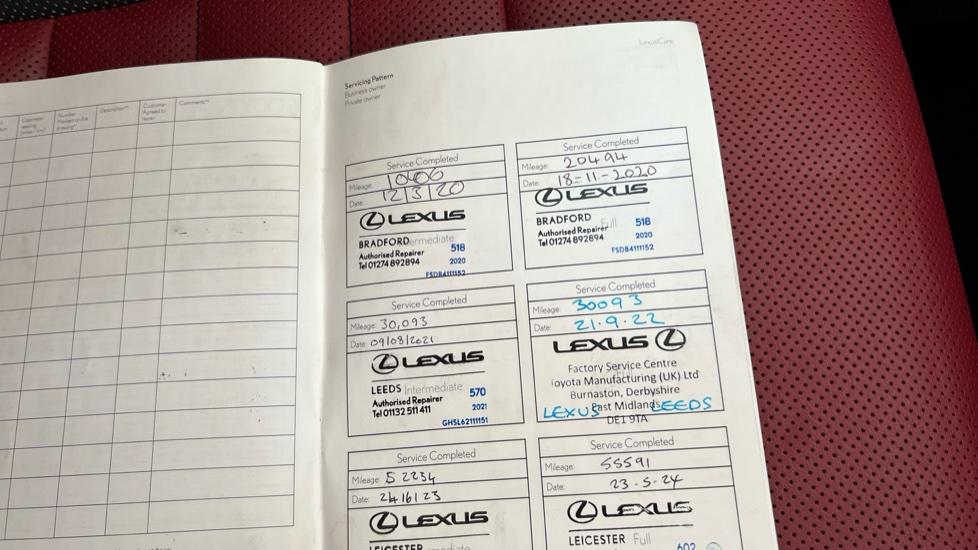 LexusCare
Servicing Pattern
Business owner
Private owner
Description
Comments
Service Completed
Mileage:
Date: 12/3/20
LEXUS
BRADFORD Intermediate
Authorised Repairer 518
Tel 01274 892894 2020
FSDB4111152
Service Completed
Mileage: 20494
Date: 18-11-2020
LEXUS
BRADFORD Full
Authorised Repairer 518
Tel 01274 892894 2020
FSDB4111152
Service Completed
Mileage: 30,093
Date: 09/08/2021
LEXUS
LEEDS Intermediate 570
Authorised Repairer
Tel 01132 511 411 2021
GHSL62111151
Service Completed
Mileage: 30093
Date: 21.9.22
LEXUS
Factory Service Centre
Toyota Manufacturing (UK) Ltd
Burnaston, Derbyshire
East Midlands
LEXUS LEEDS
DE1 9TA
Service Completed
Mileage: 52234
Date: 24/6/23
LEXUS
LEICESTER Intermediate
Service Completed
Mileage: 55591
Date: 23-5-24
LEXUS
LEICESTER Full
602